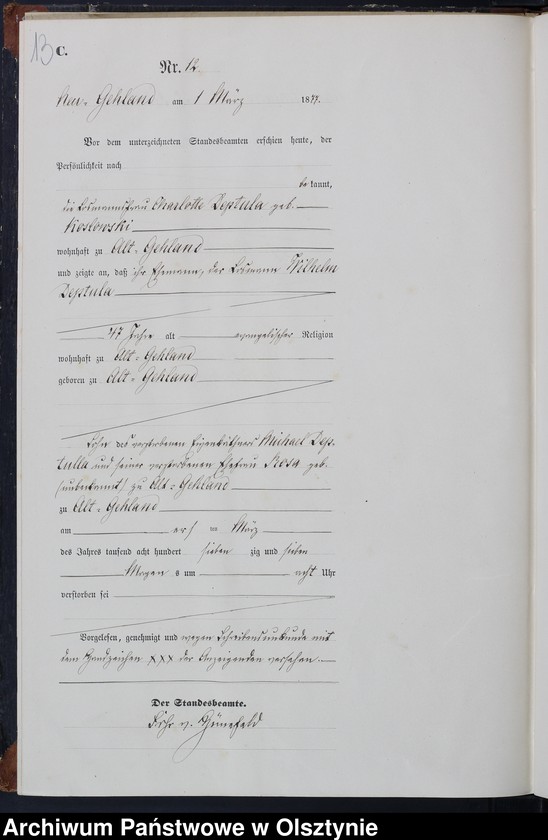 13
C.
Nr. 12.
Neu-Gehland am 1 März 1877.
Vor dem unterzeichneten Standesbeamten erschien heute, der
Persönlichkeit nach
bekannt,
die Losmannsfrau Charlotte Deptula geb.
Koslowski
wohnhaft zu Alt-Gehland
und zeigte an, daß ihr Ehemann, der Losmann Wilhelm
Deptula
47 Jahre alt evangelischer Religion
wohnhaft zu Alt-Gehland
geboren zu Alt-Gehland
Sohn des verstorbenen Eigenkäthners Michael Dep-
tulla und seiner verstorbenen Ehefrau Rosa geb.
(unbekannt) zu Alt-Gehland
zu Alt-Gehland
am ersten März
des Jahres tausend acht hundert siebenzig und sieben
Morgens um acht Uhr
verstorben sei
Vorgelesen, genehmigt und wegen Schreibensunkunde mit
dem Handzeichen XXX der Anzeigenden versehen.
Der Standesbeamte.
v. Grünefeld
Archiwum Państwowe w Olsztynie